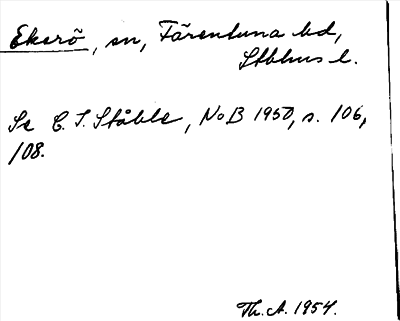 Ekerö, sn, Färentuna hd,
Stbhms l.
Se C. I. Ståhle, NoB 1950, s. 106,
108.
Th. A. 1954.